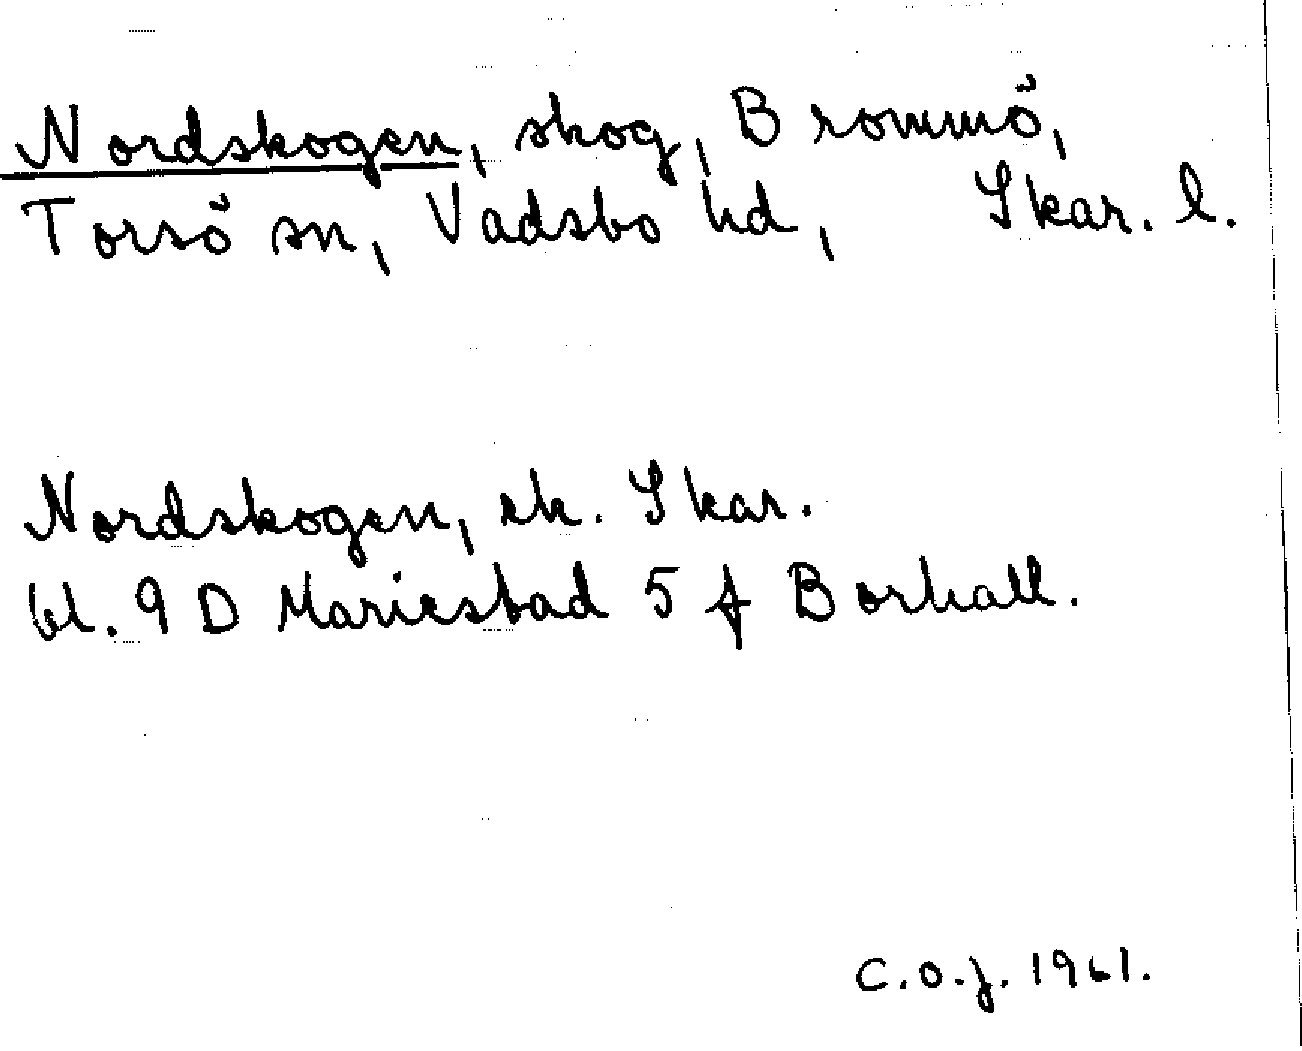 Nordskogen, skog, Brommö,
Torsö sn, Vadsbo hd, Skar. l.
Nordskogen, ek. Skar.
bl. 9 D Mariestad 5 f Borhall.
C.O.J. 1961.